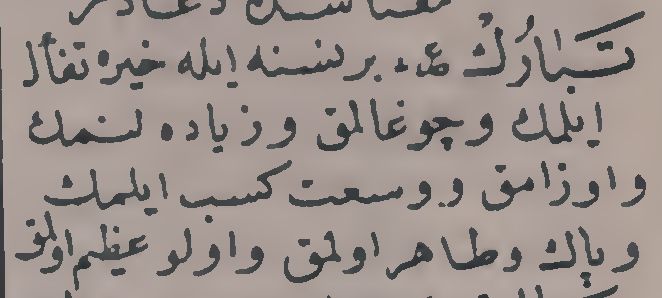 تَبَارُكْ عـ بر نسنه ايله خيره تفأل
ايلمك وچوغالمق وزياده لنمك
واوزامق ووسعت كسب ايلمك
وپاك وطاهر اولمق واولو عظيم اولمق